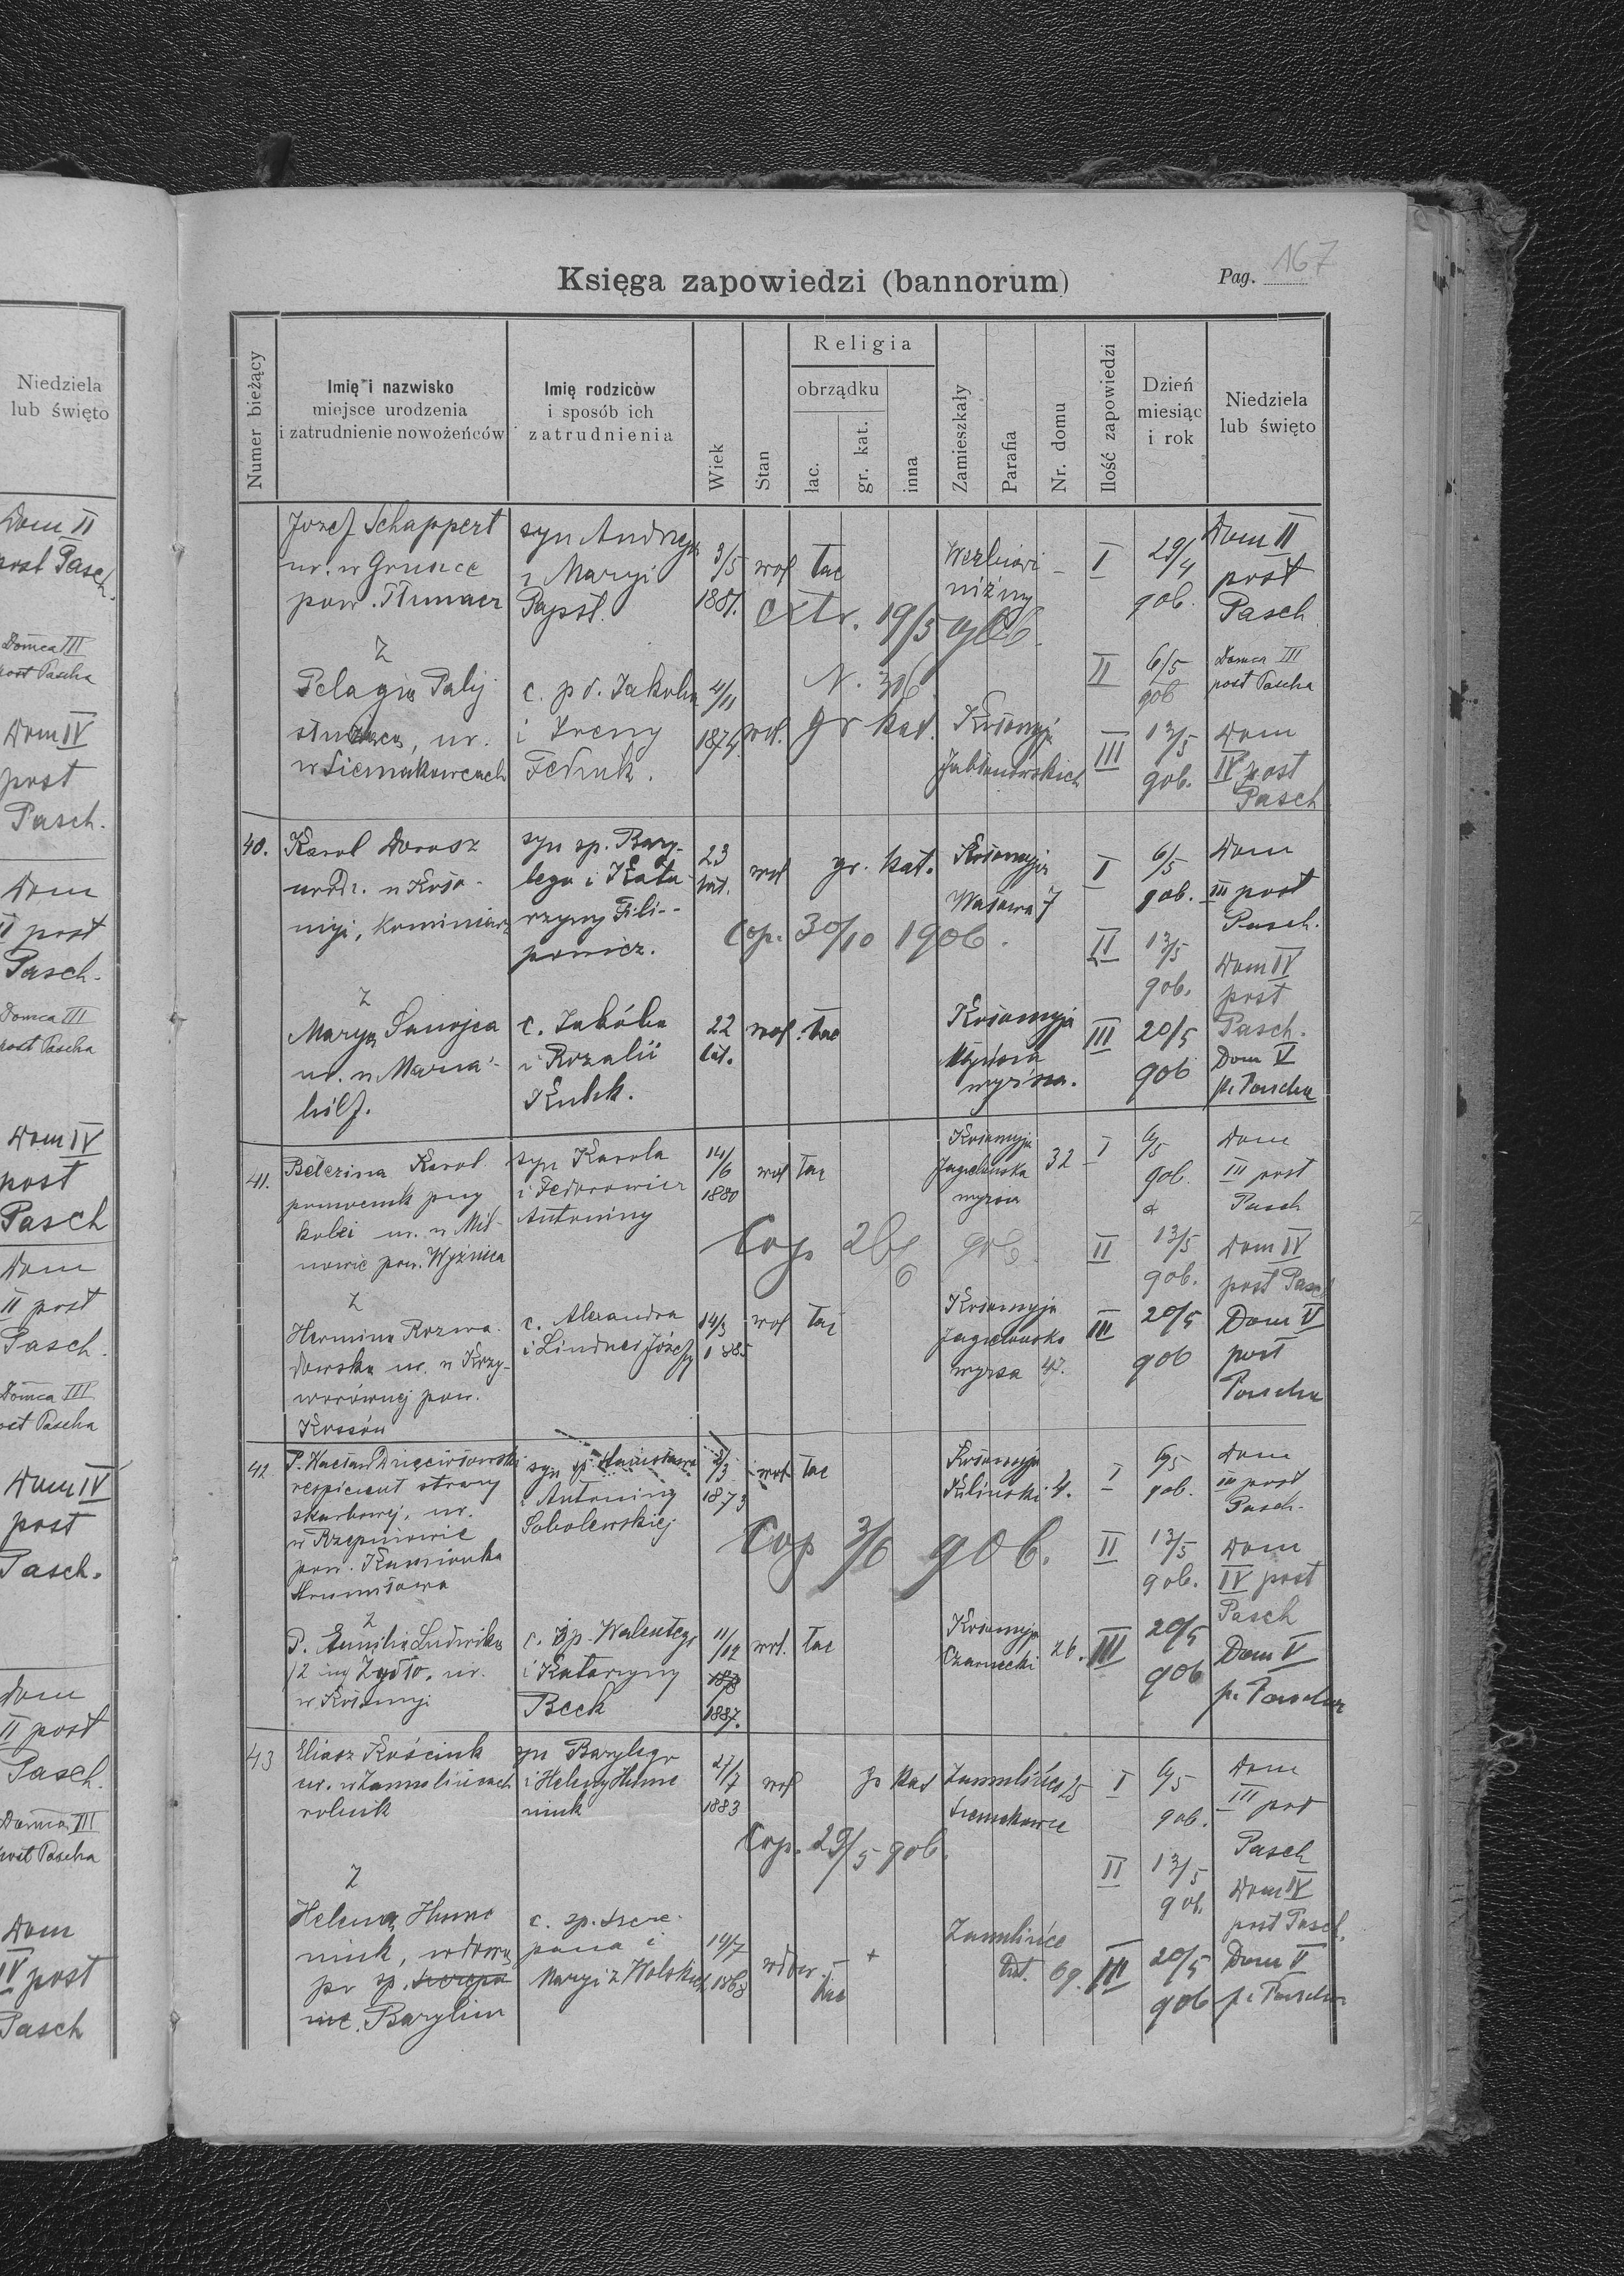 Niedziela
lub święto
Dom II
post Pasch.
Domca III
post Pascha
Dom IV
post
Pasch.
Dom
II post
Pasch.
Domca III
post Pascha
Dom IV
post
Pasch
Dom
II post
Pasch.
Domca III
post Pascha
Dom IV
post
Pasch.
Dom
II post
Pasch.
Domca III
post Pascha
Dom
IV post
Pasch
Księga zapowiedzi (bannorum)
Pag. 167
Numer bieżący
Imię i nazwisko
miejsce urodzenia
i zatrudnienie nowożeńców
Imię rodziców
i sposób ich
zatrudnienia
Wiek
Stan
Religia
obrządku
łac.
gr. kat.
inna
Zamieszkały
Parafia
Nr. domu
Ilość zapowiedzi
Dzień
miesiąc
i rok
Niedziela
lub święto
Jozef Schappert
ur. w
pow. Tłumacz
syn Andrzeja
i Maryi
Papst.
3/5
1881.
wol
łac
niżny
I
29/4
906.
Dom II
post
Pasch.
extr. 19/5 906.
N. 316
z
Pelagią Palij
ur.
w Siemakowcach
c. p d. Jakoba
i Ireny
Fedruk.
4/11
1874
wol.
gr kat.
Kołomyja
Jabłonowskich
II
6/5
906
Domca III
post Pascha
III
13/5
906.
Dom
IV post
Pasch
40.
Karol Dorosz
urodz. w Koło-
myi, kominiarz
syn sp. Bazy-
lego i Kata-
rzyny Fili-
powicz.
23
lat.
wol
gr. kat.
Kołomyja
Wałowa 7
I
6/5
906.
Dom
III post
Pasch.
Cop. 30/10 1906.
II
13/5
906.
Dom IV
post
Pasch.
z
Maryą Sanojca
ur. w Maria-
hilf.
c. Jakóba
i Rozalii
Kubik.
22
lat.
wol.
łac
Kołomyja
Młyńska
wyższa.
III
20/5
906
Dom V
p. Pascha
41.
Belezina Karol
pomocnik przy
kolei ur. w Mil-
nowie pow. Wyżnica
syn Karola
i Fedorowicz
Antoniny
14/6
1880
wol
łac
Kołomyja
Jagielońska
wyższa
32
I
6/5
906.
Dom
III post
Pasch
Cop 26/6 906.
II
13/5
906.
Dom IV
post Pasch
z
Herminą Rozwa-
dowską ur. w Krzy-
worówniej pow.
Kossów
c. Alexandra
i Lindner Józefy
14/3
1885
wol
łac
Kołomyja
Jagielońska
wyższa 47.
III
20/5
906
Dom V
post
Pascha
42.
P. Wacław Dzięciołowski
respicient straży
skarbowej, ur.
w Rzepniowie
pow. Kamionka
Strumiłowa
syn Stanisława
i Antoniny
Sobolewskiej
2/3
1873
wol
łac
Kołomyja
Kilinski 4.
I
6/5
906.
Dom
III post
Pasch.
Cop 3/6 906.
II
13/5
906.
Dom
IV post
Pasch
z
P. Emilią Ludwiką
/2 im/ Zydło, ur.
w Kołomyji
c. śp. Walentego
i Katarzyny
Beck
11/12
1887.
wol.
łac
Kołomyja
Czarnecki 26.
III
20/5
906
Dom V
p. Pascha
43
Eliasz Kościuk
ur. w Zamulińcach
rolnik
syn Bazylego
i Heleny Hume
niuk
27/7
1883
wol
gr kat
Zamulińce 25
Siemakowce
I
6/5
906.
Dom
III post
Pasch
Cop. 29/5 906.
II
13/5
906.
Dom IV
post Pasch.
z
Heleną Hume
niuk, wdową
po sp.
Bazylim
c. sp. Szcze-
pana i
Maryi z Wolskich
19/7
1868
wdow.
łac
+
Zamulińce
69.
III
20/5
906
Dom V
p. Pascha